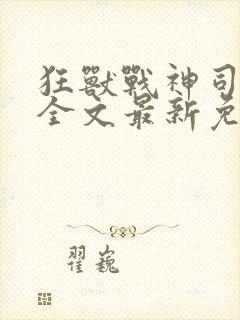 狂獸戰神司
全文最新免
翟巍